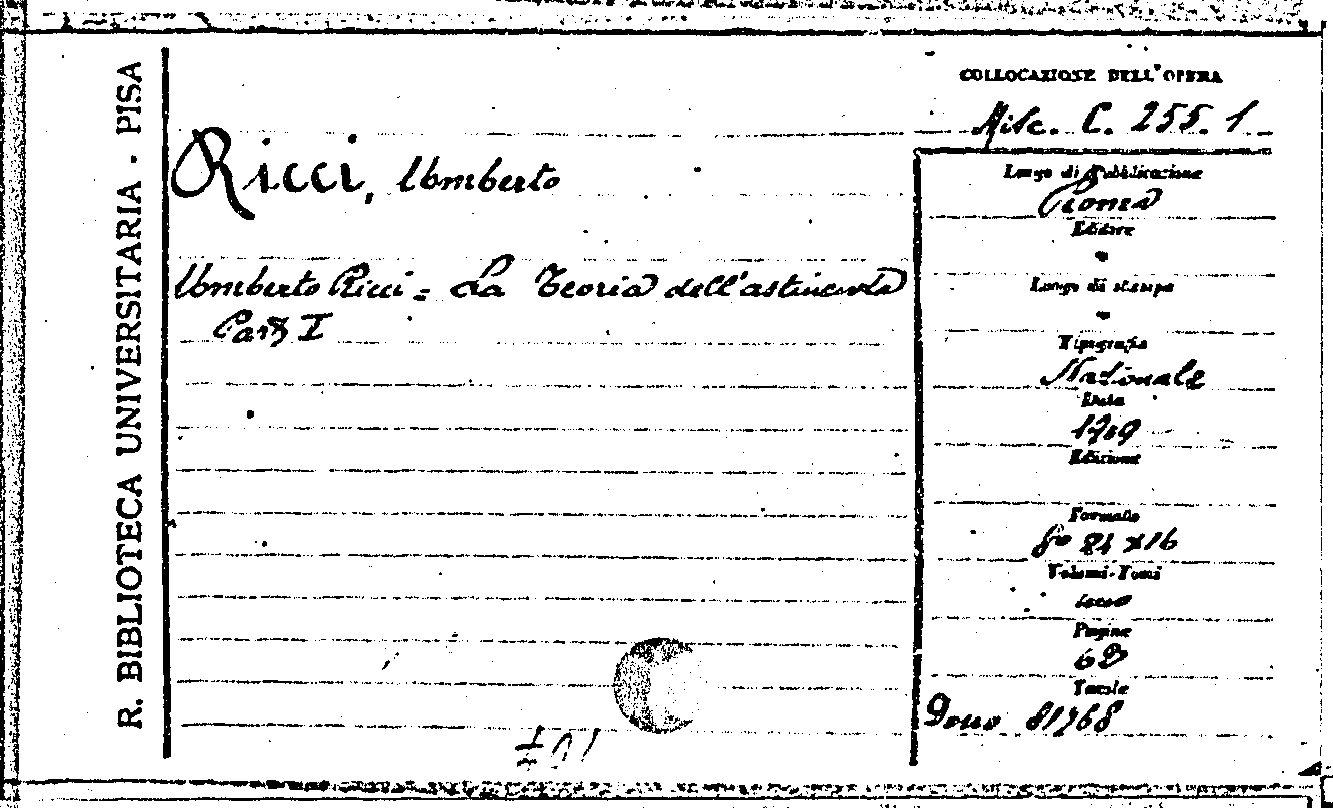 R. BIBLIOTECA UNIVERSITARIA - PISA
COLLOCAZIONE DELL'OPERA
Misc. C. 255. 1
Ricci, Umberto
Umberto Ricci = La Teoria dell'astinenza
Parte I
Luogo di Pubblicazione
Roma
Editore
"
Luogo di stampa
"
Tipografia
Nazionale
Data
1909
Edizione
Formato
8° 24 x 16
Volumi-Tomi
uno
Pagine
62
Tavole
Dono 81768